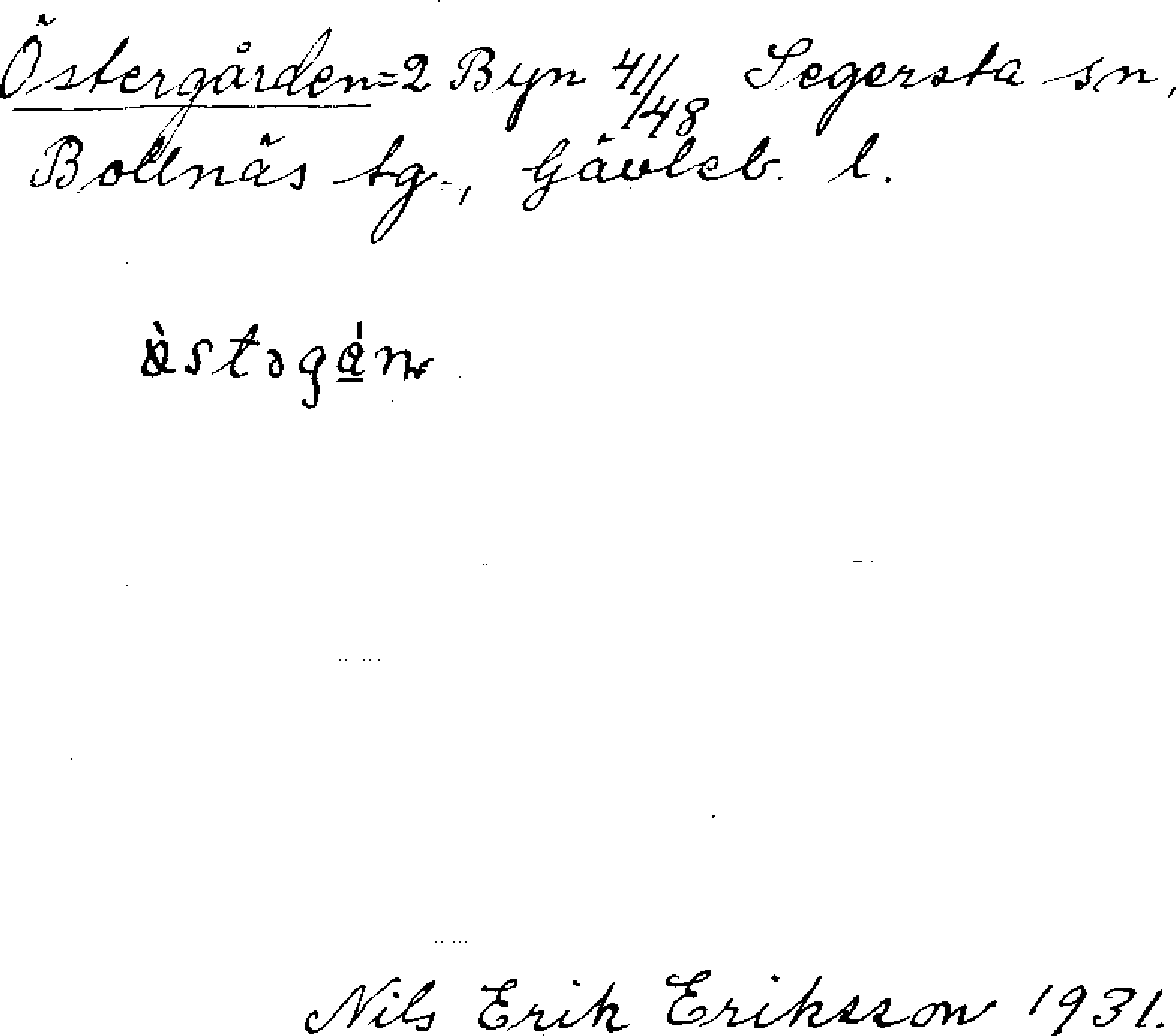 Östergården=2 Byn 41/48 Segersta sn,
Bollnäs tg., Gävleb. l.
Nils Erik Eriksson 1931.